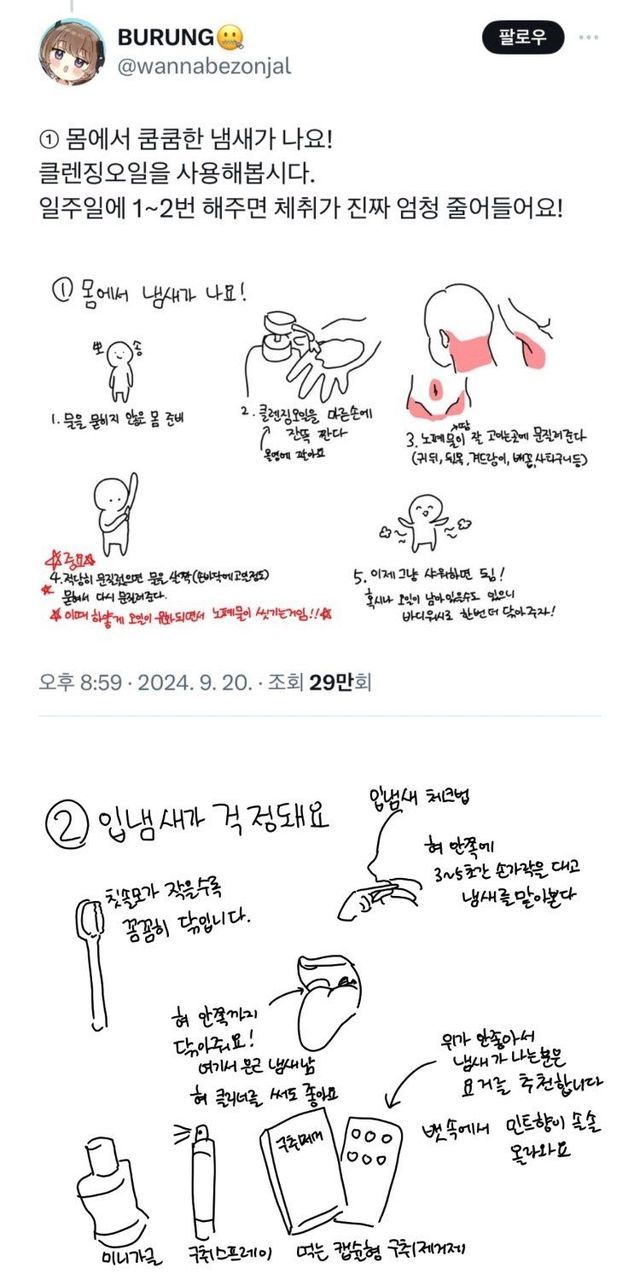 BURUNG🤐
@wannabezonjal
팔로우
① 몸에서 쿰쿰한 냄새가 나요!
클렌징오일을 사용해봅시다.
일주일에 1~2번 해주면 체취가 진짜 엄청 줄어들어요!
① 몸에서 냄새가 나요!
뽀송
1. 물을 묻히지 않은 몸 준비
2. 클렌징오일을 마른손에
잔뜩 짠다
올영에 많아요
3. 노폐물이 잘 고이는곳에 문질러준다
땀
(귀 뒤, 뒷목, 겨드랑이, 배꼽, 사타구니 등)
☆중요☆
4. 적당히 문질렀으면 물을 살짝 (손바닥에 고일정도)
묻혀서 다시 문질러준다.
☆이때 하얗게 오일이 유화되면서 노폐물이 씻기는거임!!☆
5. 이제 그냥 샤워하면 됨!
혹시나 오일이 남아있을수도 있으니
바디워시로 한번더 닦아주자!
오후 8:59 · 2024. 9. 20. · 조회 29만회
② 입냄새가 걱정돼요
입냄새 체크법
혀 안쪽에
3~5초간 손가락을 대고
냄새를 맡아본다
칫솔모가 작을수록
꼼꼼히 닦입니다.
혀 안쪽까지
닦아줘요!
여기서 은근 냄새남
혀 클리너를 써도 좋아요
위가 안좋아서
냄새가 나는분은
요거를 추천합니다
뱃속에서 민트향이 솔솔
올라와요
미니가글
구취스프레이
먹는 캡슐형 구취제거제